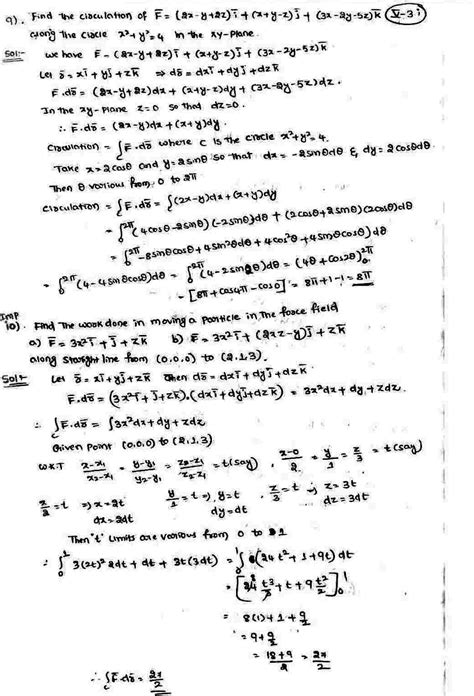 9). Find the circulation of F̄ = (2x-y+2z)ī + (x+y-z)j̄ + (3x-2y-5z)k̄ V-3i
along the circle x²+y²=4 in the xy-plane.
Sol:- We have F̄ = (2x-y+2z)ī + (x+y-z)j̄ + (3x-2y-5z)k̄
Let s̄ = xī + yj̄ + zk̄ ⇒ ds̄ = dxī + dyj̄ + dzk̄
F̄.ds̄ = (2x-y+2z)dx + (x+y-z)dy + (3x-2y-5z)dz.
In the xy-plane z=0 so that dz=0.
∴ F̄.ds̄ = (2x-y)dx + (x+y)dy.
Circulation = ∫c F̄.ds̄ where C is the circle x²+y²=4.
Take x=2cosθ and y=2sinθ so that dx = -2sinθdθ & dy = 2cosθdθ.
Then θ various from 0 to 2π
Circulation = ∫c F̄.ds̄ = ∫(2x-y)dx + (x+y)dy
= ∫₀^2π (4cosθ-2sinθ)(-2sinθ)dθ + (2cosθ+2sinθ)(2cosθ)dθ
= ∫₀^2π (-8sinθcosθ + 4sin²θdθ + 4cos²θ + 4sinθcosθ) dθ
= ∫₀^2π (4-4sinθcosθ)dθ = ∫₀^2π (4-2sin2θ)dθ = (4θ+cos2θ)₀^2π
= [8π+cos4π-cos0] = 8π+1-1 = 8π
Imp
10). Find the work done in moving a particle in the force field
a) F̄ = 3x²ī + j̄ + zk̄ b) F̄ = 3x²ī + (2xz-y)j̄ + zk̄
along straight line from (0,0,0) to (2,1,3).
Sol:- Let s̄ = xī + yj̄ + zk̄ then ds̄ = dxī + dyj̄ + dzk̄.
F̄.ds̄ = (3x²ī + j̄ + zk̄).(dxī+dyj̄+dzk̄) = 3x²dx + dy + zdz.
∴ ∫c F̄.ds̄ = ∫3x²dx + dy + zdz
Given Point (0,0,0) to (2,1,3)
W.K.T (x-x₁)/(x₂-x₁) = (y-y₁)/(y₂-y₁) = (z-z₁)/(z₂-z₁) = t(say) , (x-0)/2 = y/1 = z/3 = t(say)
x/2 = t ⇒ x=2t y/1 = t ⇒ y=t , z/3 = t ⇒ z=3t
dx=2dt dy=dt dz=3dt
Then 't' limits are various from 0 to 1
∴ ∫₀¹ 3(2t)² 2dt + dt + 3t(3dt) = ∫₀¹ (24t²+1+9t) dt
= [24 t³/3 + t + 9 t²/2]₀¹
= 8(1)+1+9/2
= 9+9/2
= (18+9)/2 = 27/2
∴ ∫c F̄.ds̄ = 27/2